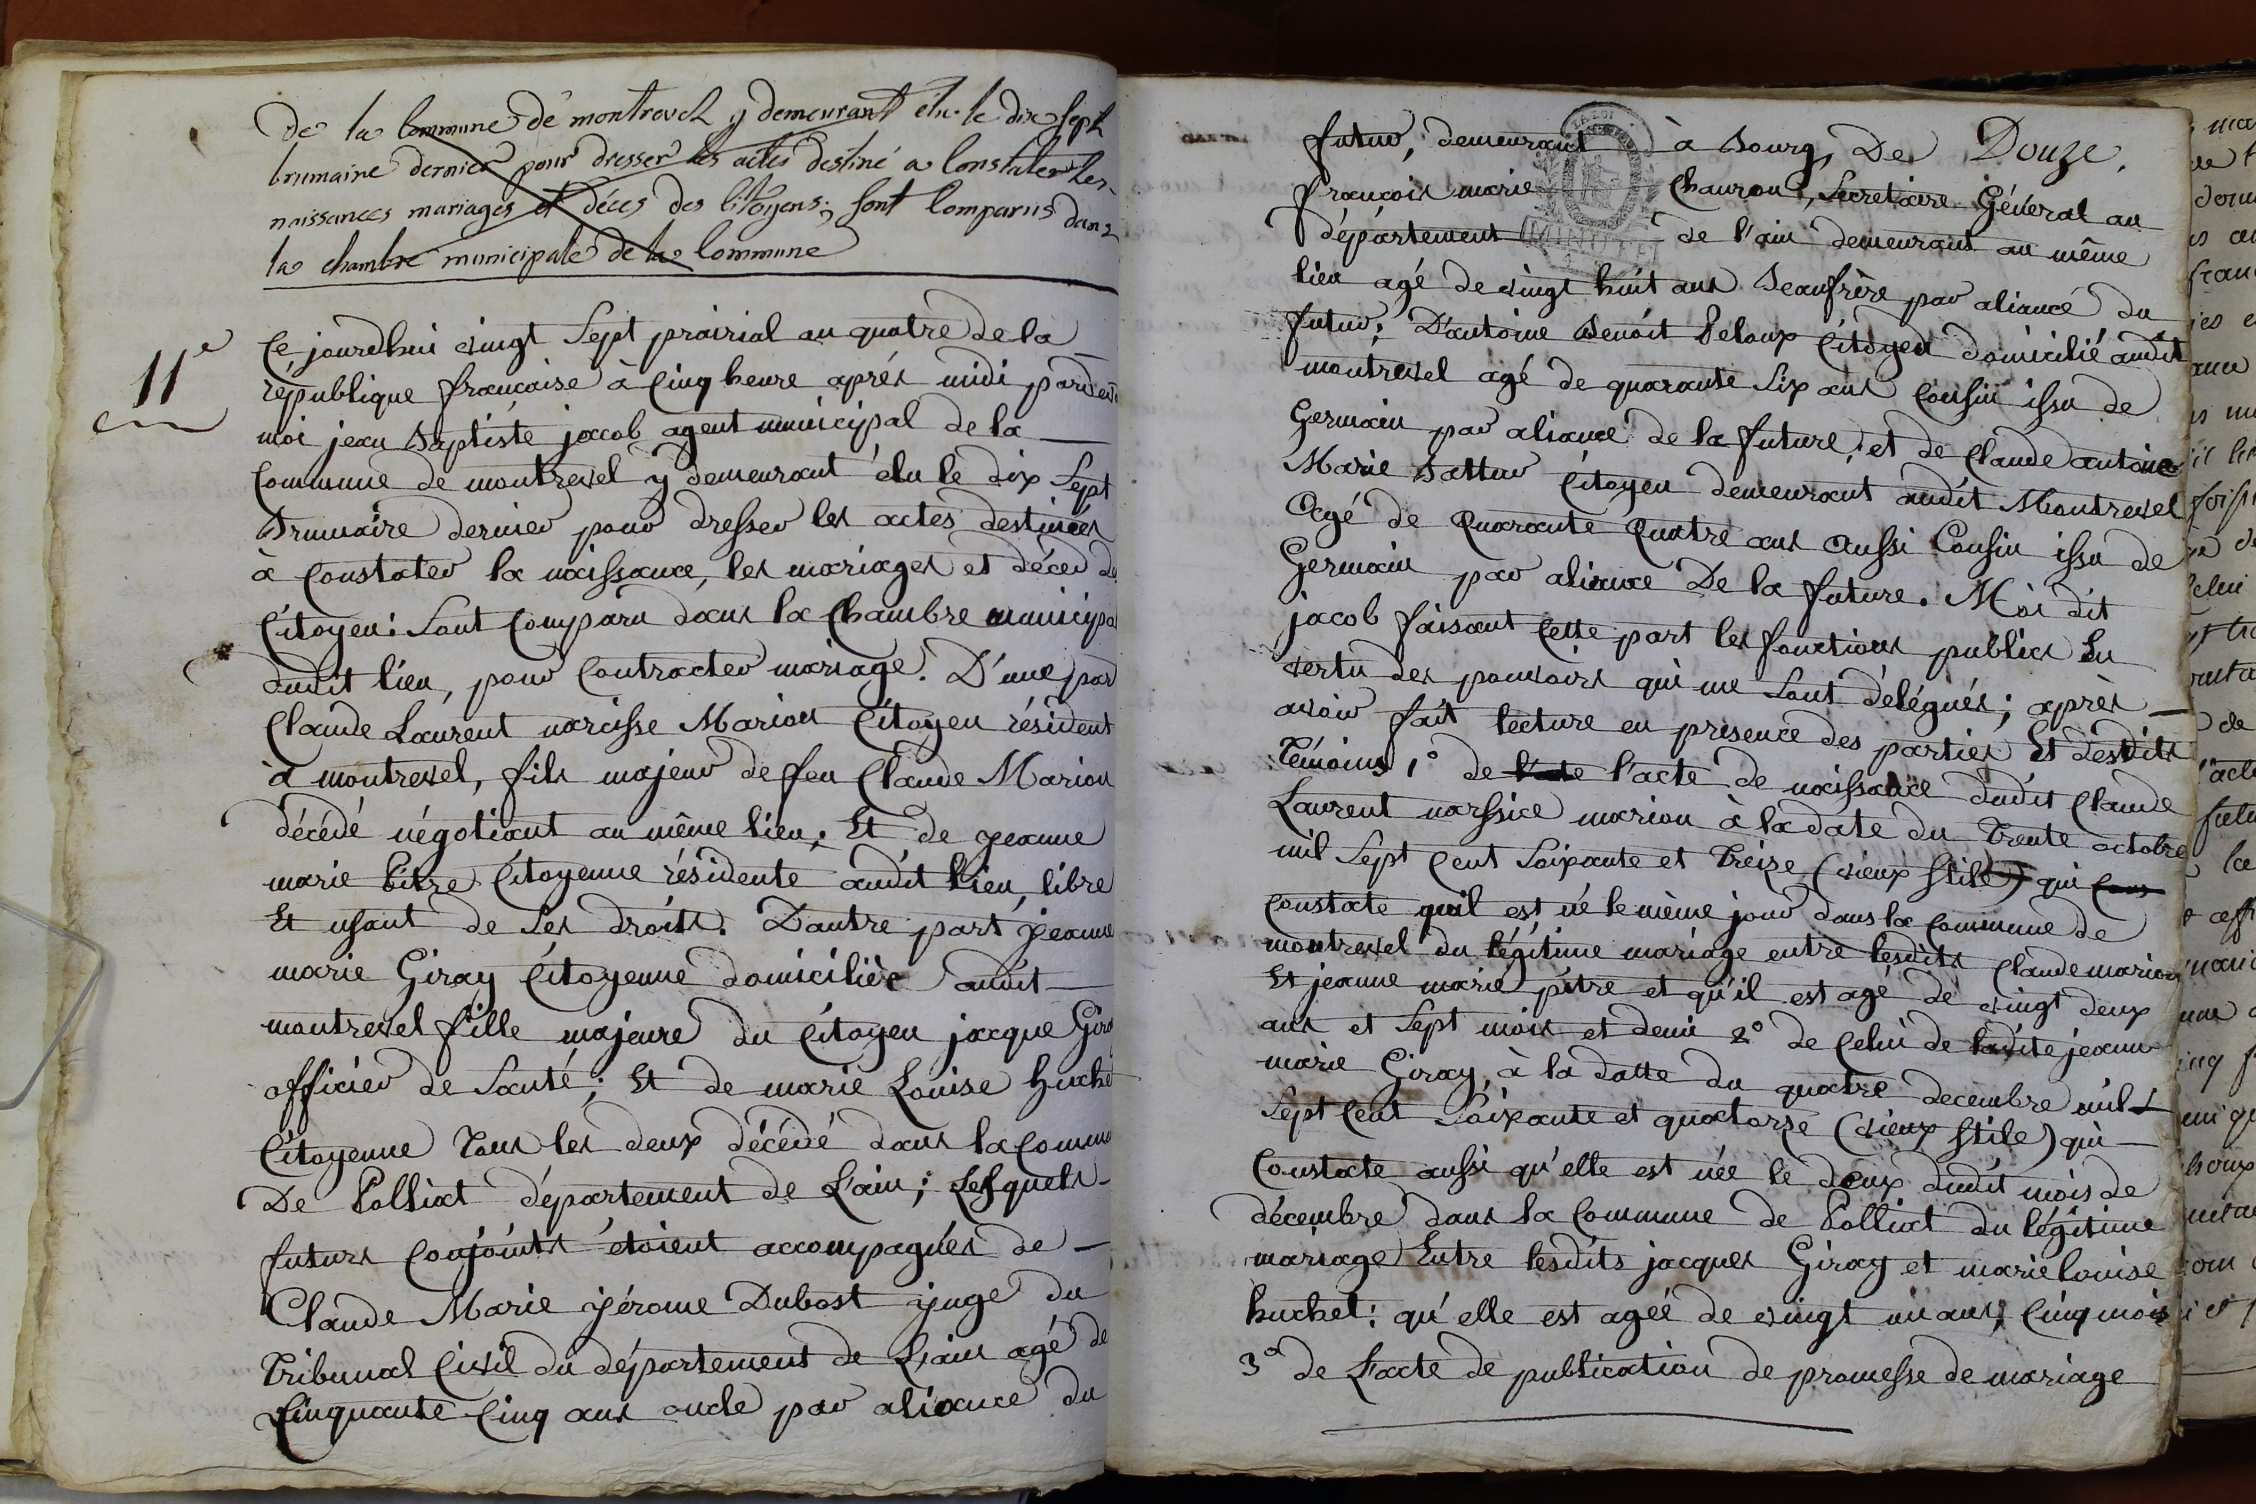 de la Commune de montrevel y demeurant élu le dix sept
brumaire dernier pour dresser les actes destiné a Constater les
naissances mariages et déces des Citoyens; sont Comparus dans
la chambre municipale de la Commune
11e
Ce jourdhui vingt Sept prairial an quatre de la
république francaise à Cinq heure aprés midi pardev
moi jean Baptiste jacob agent municipal de la
Commune de montrevel y demeurant élu le dix Sept
Brumaire dernier pour dresser les actes destinées
à Constater la naissance, les mariages et décés d
Citoyen: Sont Comparu dans la Chambre municipa
dudit lieu, pour Contracter mariage. D'une par
Claude Laurent narcisse Marion Citoyen résident
à montrevel, fils majeur de feu Claude Marion
décédé négotiant au même lieu, Et de jeanne
marie Pitre Citoyenne résidente audit lieu, libre
Et usant de Ses droits. D'autre part jeanne
marie Giray Citoyenne domiciliée audit
montrevel fille majeure du Citoyen jacque Gira
officier de Santé; Et de marie Louise huche
Citoyenne Tous les deux décédé dans la Commu
De Polliat département de L'ain; Lesquels
futurs Conjoints étoient accompagnés de
Claude Marie jérome Dubost juge du
Tribunal Civil du département de L'ain agé de
Cinquante Cinq ans oncle par aliance du
futur, demeurant à Bourg, De Douze.
françois marie Chauron, Secretaire Général au
département de l'ain demeurant au même
lieu agé de vingt huit ans Beaufrère par aliance du
futur; D'antoine Benoit Peloux Citoyen domicilié audit
montrevel agé de quarante Six ans Cousin issu de
Germain par aliance de la future, et de Claude antoine
Marie Battur Citoyen demeurant audit Montrevel
Agé de Quarante Quatre ans Aussi Cousin issu de
Germain par aliance De la future. Moi dit
jacob faisant Cette part les fonctions publics En
vertu des pouvoirs qui me Sont délégués; après
avoir fait lecture en presence des parties Et desdits
Témoins, 1° de l'acte l'acte de naissance dudit Claude
Laurent narssice marion à la date du Trente octobre
mil Sept Cent Soixante et Treize (vieux Stile) qui Cons
Constate quil est né le même jour dans la Commune de
montrevel du légitime mariage entre lesdits Claude marion
Et jeanne marie pitre et qu'il est agé de vingt deux
ans et Sept mois et demi 2° de Celui de ladite jeanne
marie Giray, à la datte du quatre decembre mil
Sept Cent Soixante et quatorze (vieux Stile) qui
Constate aussi qu'elle est née le deux dudit mois de
décembre dans la Commune de Polliat du légitime
mariage Entre lesdits jacques Giray et marie louise
huchet: qu'elle est agée de vingt un ans, Cinq mois
3° de L'acte de publication de promesse de mariage